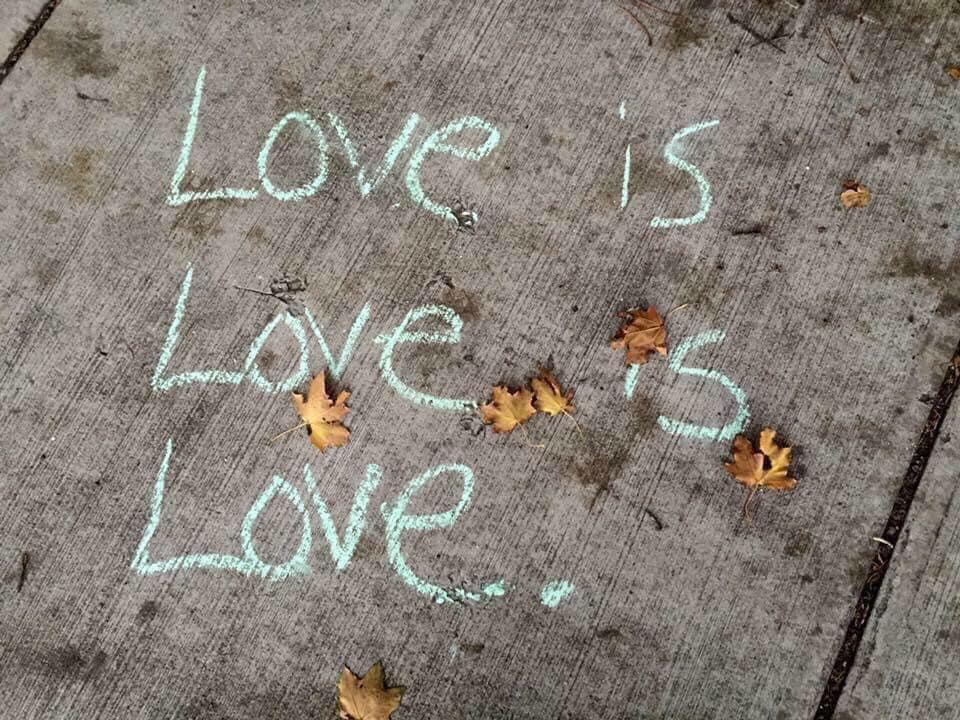 Love is
Love is
Love..